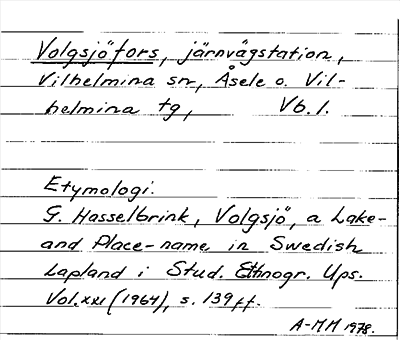 Volgsjöfors, järnvägstation,
Vilhelmina sn, Åsele o. Vil-
helmina tg, Vb. l.
Etymologi.
G. Hasselbrink, Volgsjö, a Lake-
and Place-name in Swedish
Lapland i Stud. Ethnogr. Ups.
Vol. XXI (1964), s. 139 ff.
A-MM 1978.